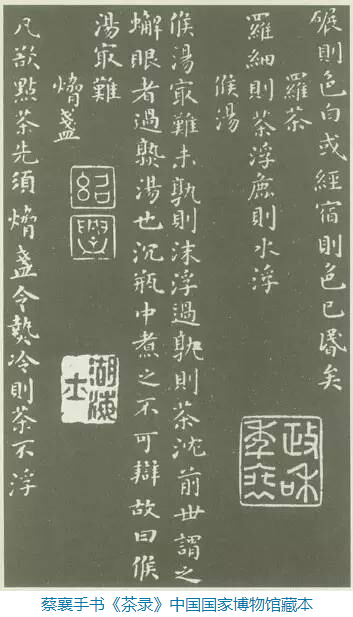 碾則色白或經宿則色已昬矣
羅茶
羅細則茶浮麄則水浮
候湯
候湯冣難未孰則沫浮過孰則茶沈前世謂之
蠏眼者過熟湯也沉瓶中煮之不可辯故曰候
湯冣難
熁盞
紹興
凡欲點茶先須熁盞令熱冷則茶不浮
湖海
政和
蔡襄手书《茶录》中国国家博物馆藏本